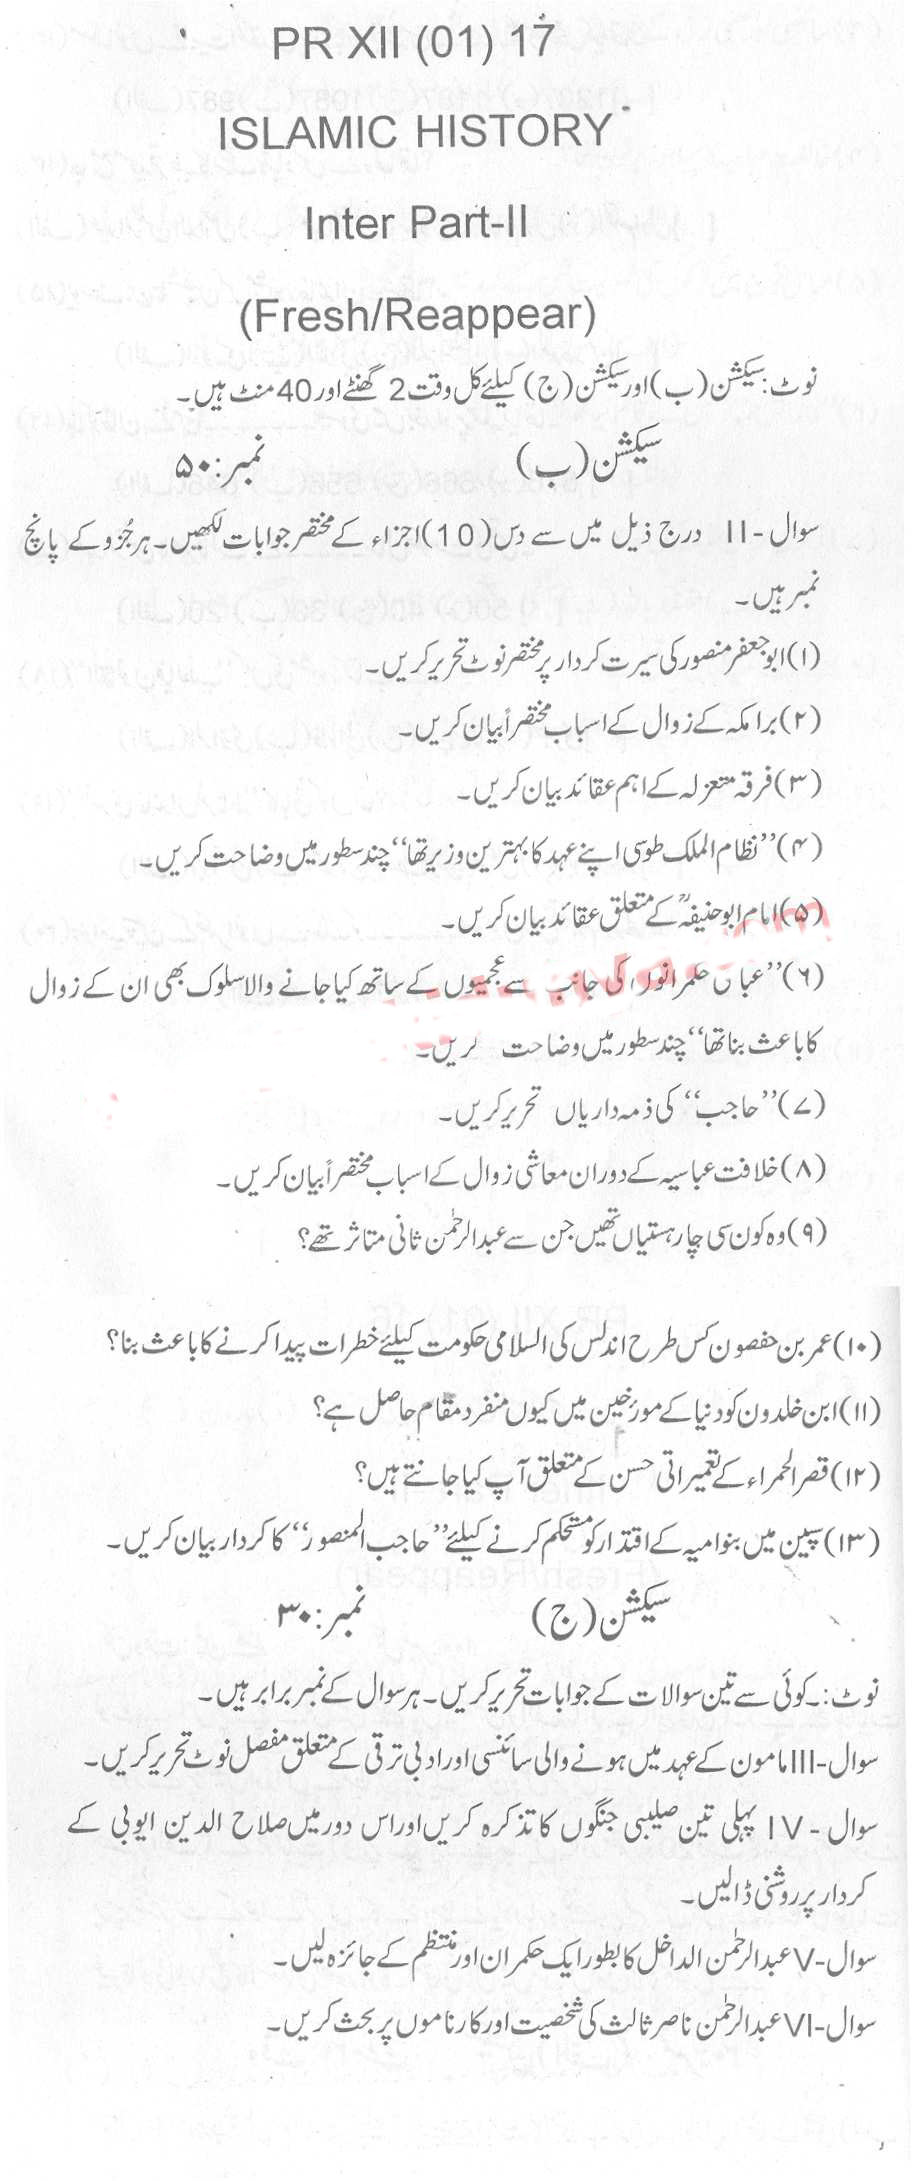 PR XII (01) 17
ISLAMIC HISTORY
Inter Part-II
(Fresh/Reappear)
نوٹ: سیکشن (ب) اور سیکشن (ج) کیلئے کل وقت 2 گھنٹے اور 40 منٹ ہیں۔
سیکشن (ب) نمبر: ۵۰
سوال -II درج ذیل میں سے دس (10) اجزاء کے مختصر جوابات لکھیں۔ ہر جُزو کے پانچ
نمبر ہیں۔
(۱) ابو جعفر منصور کی سیرت کردار پر مختصر نوٹ تحریر کریں۔
(۲) برامکہ کے زوال کے اسباب مختصراً بیان کریں۔
(۳) فرقہ متعزلہ کے اہم عقائد بیان کریں۔
(۴) ’’نظام الملک طوسی اپنے عہد کا بہترین وزیر تھا‘‘ چند سطور میں وضاحت کریں۔
(۵) امام ابو حنیفہؒ کے متعلق عقائد بیان کریں۔
(۶) ’’عباس حکمرانوں کی جانب سے عجمیوں کے ساتھ کیا جانے والا سلوک بھی ان کے زوال
کا باعث بنا تھا‘‘ چند سطور میں وضاحت کریں۔
(۷) ’’حاجب‘‘ کی ذمہ داریاں تحریر کریں۔
(۸) خلافت عباسیہ کے دوران معاشی زوال کے اسباب مختصراً بیان کریں۔
(۹) وہ کون سی چار ہستیاں تھیں جن سے عبدالرحمٰن ثانی متاثر تھے؟
(۱۰) عمر بن حفصون کس طرح اندلس کی السلامی حکومت کیلئے خطرات پیدا کرنے کا باعث بنا؟
(۱۱) ابن خلدون کو دنیا کے مورٔخین میں کیوں منفرد مقام حاصل ہے؟
(۱۲) قصر الحمراء کے تعمیراتی حسن کے متعلق آپ کیا جانتے ہیں؟
(۱۳) سپین میں بنو امیہ کے اقتدار کو مستحکم کرنے کیلئے ’’حاجب المنصور‘‘ کا کردار بیان کریں۔
سیکشن (ج) نمبر: ۳۰
نوٹ:۔ کوئی سے تین سوالات کے جوابات تحریر کریں۔ ہر سوال کے نمبر برابر ہیں۔
سوال-III مامون کے عہد میں ہونے والی سائنسی اور ادبی ترقی کے متعلق مفصل نوٹ تحریر کریں۔
سوال -IV پہلی تین صلیبی جنگوں کا تذکرہ کریں اور اس دور میں صلاح الدین ایوبی کے
کردار پر روشنی ڈالیں۔
سوال-V عبدالرحمٰن الداخل کا بطور ایک حکمران اور منتظم کے جائزہ لیں۔
سوال-VI عبدالرحمٰن ناصر ثالث کی شخصیت اور کارناموں پر بحث کریں۔